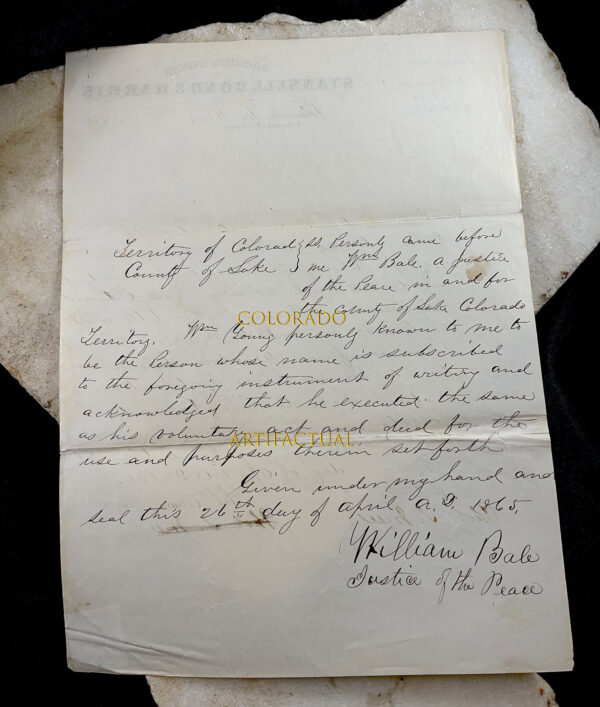 STANSELL, BOND & HARRIS
Territory of Colorado } ss Personly came before
County of Lake } me Wm Bale. a justice
of the Peace in and for
the county of Lake Colorado
COLORADO
Territory. Wm Young personly known to me to
be the Person whose name is subscribed
to the foregoing instrument of writing and
acknowledged that he executed the same
as his voluntary act and deed for the
ARTIFACTUAL
use and purposes therein set forth
Given under my hand and
seal this 26th day of april A.D. 1865.
William Bale
Justice of the Peace